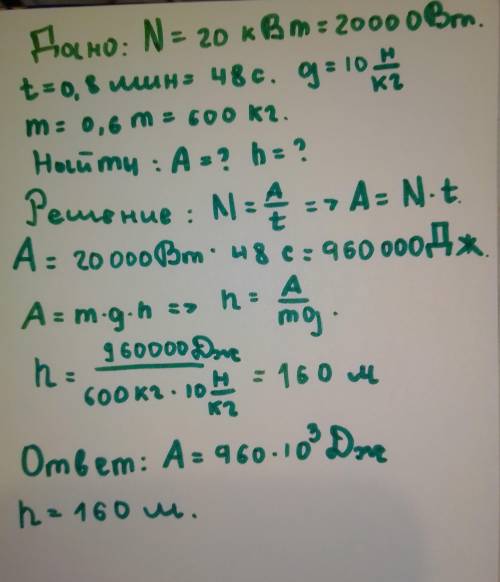 Дано: N = 20 кВт = 20000Вт.
t = 0,8 мин = 48 с. g = 10 Н/кг
m = 0,6 т = 600 кг.
Найти: A = ? h = ?
Решение: N = A/t => A = N·t.
A = 20000Вт · 48 с = 960000Дж.
A = m·g·h => h = A/mg.
h = 960000Дж/600кг·10Н/кг = 160 м
Ответ: A = 960·10³Дж
h = 160 м.